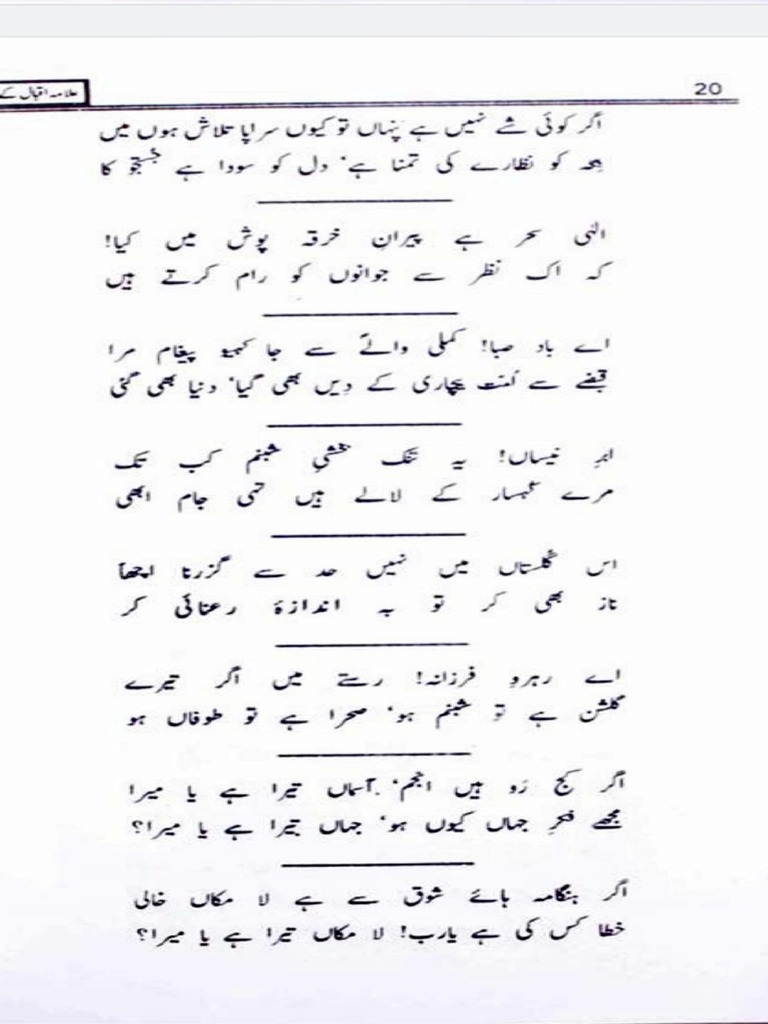 20
علامہ اقبال کے
اگر کوئی شے نہیں ہے پنہاں تو کیوں سراپا تلاش ہوں میں
نگہ کو نظارے کی تمنا ہے، دل کو سودا ہے جستجو کا
الٰہی سحر ہے پیرانِ خرقہ پوش میں کیا!
کہ اک نظر سے جوانوں کو رام کرتے ہیں
اے باد صبا! کملی والےؐ سے جا کہیو پیغام مرا
قبضے سے اُمت بیچاری کے دِیں بھی گیا، دنیا بھی گئی
ابرِ نیساں! یہ تنک بخشیِ شبنم کب تک
مرے کہسار کے لالے ہیں تہی جام ابھی
اس گلستاں میں نہیں حد سے گزرنا اچھا
ناز بھی کر تو بہ اندازۂ رعنائی کر
اے رہروِ فرزانہ! رستے میں اگر تیرے
گلشن ہے تو شبنم ہو، صحرا ہے تو طوفاں ہو
اگر کج رَو ہیں انجم، آسماں تیرا ہے یا میرا
مجھے فکرِ جہاں کیوں ہو، جہاں تیرا ہے یا میرا؟
اگر ہنگامہ ہائے شوق سے ہے لا مکاں خالی
خطا کس کی ہے یارب! لا مکاں تیرا ہے یا میرا؟